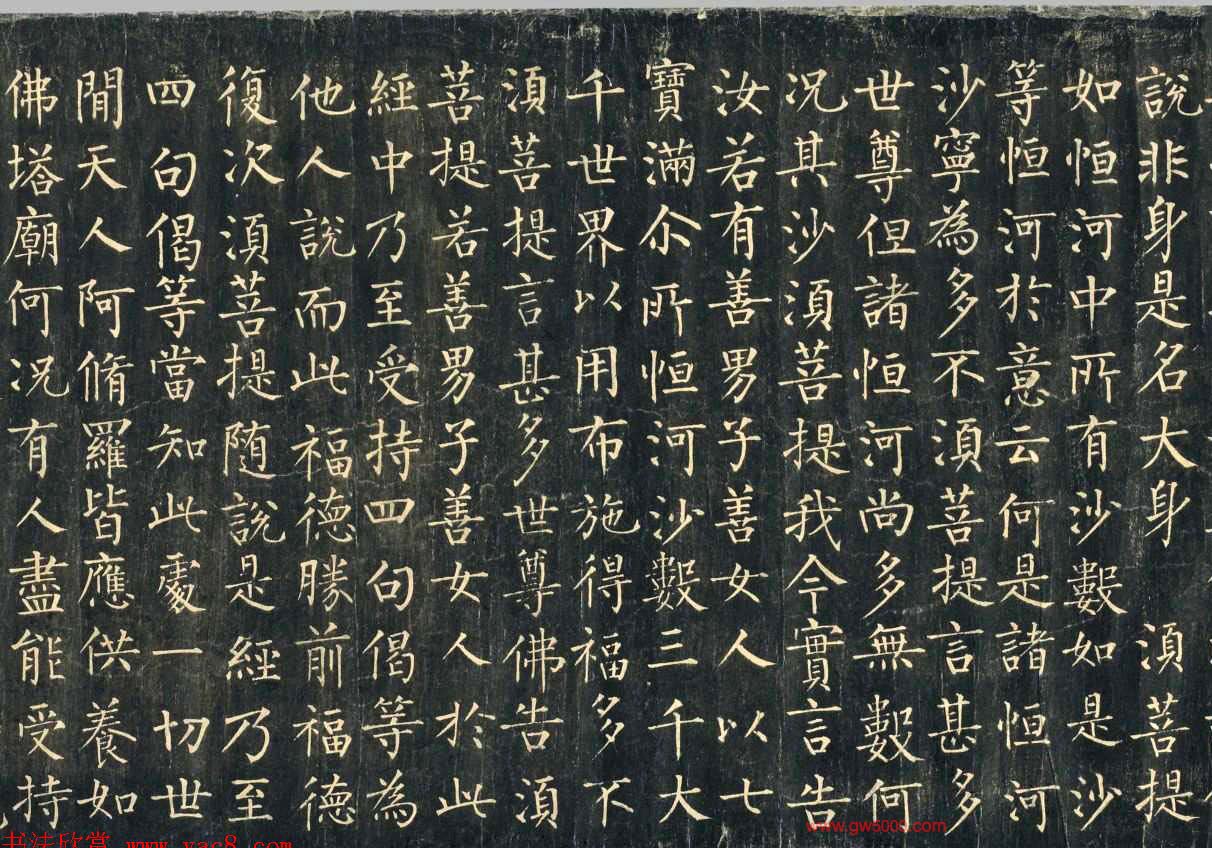 說非身是名大身 須菩提
如恒河中所有沙數如是沙
等恒河於意云何是諸恒河
沙寧為多不須菩提言甚多
世尊但諸恒河尚多無數何
況其沙須菩提我今實言告
汝若有善男子善女人以七
寶滿尒所恒河沙數三千大
千世界以用布施得福多不
須菩提言甚多世尊佛告須
菩提若善男子善女人於此
經中乃至受持四句偈等為
他人說而此福德勝前福德
復次須菩提随說是經乃至
四句偈等當知此處一切世
間天人阿脩羅皆應供養如
佛塔廟何況有人盡能受持
www.gw5000.com
书法欣赏 www.yac8.com